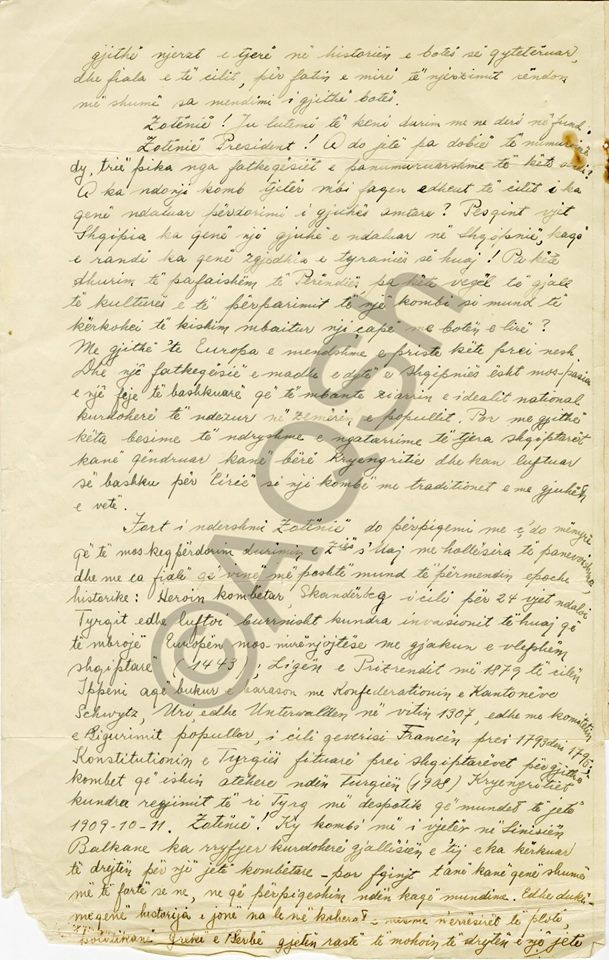 gjithë njerzt e tjerë në historiën e botës së qytetëruar,
dhe fiala e të cilit, për fatin e mirë të njerzimit rëndon
më shumë sa mendimi i gjithë botës.
Zotënië! Ju lutemi të keni durim me ne deri në fund.
Zotënië President! A do jetë pa dobië të numurojmë
dy, trië pika nga fatkeqësiët e panumuruarshme të këtë
A ka ndonji komb tjetër mbi faqen edheut të cilit i ka
qenë ndaluar përdorimi i gjuhës amtare? Pesqint vjet
Shqipia ka qenë një gjuhë e ndaluar në Shqipnië, kaqë
e randë ka qenë zgjedha e tyraniës së huaj! Pa këtë
dhurim të pafaishëm të Perëndiës pa këtë vegël të gjallë
të kulturës e të përparimit të një kombi si mund të
kërkohei të kishim mbaitur nji çape me botën e lirë?
Me gjithë të Europa e mendshme e priste këtë prei nesh.
Dhe një fatkeqësië e madhe e dytë e Shqipniës ësht mos-pasia
e një feje të bashkuarë që të mbante ziarrin e idealit national
kurdoherë të ndezur në zemërën e popullit. Por me gjithë
këta besime të ndryshme e ngatarrime të tjera shqiptarët
kanë qëndruar kanë bërë Kryengritië dhe kan luftuar
së bashku për Lirië si nji kombë me traditionet e me gjuhën
e vetë.
Fort i ndershmi Zotënië do përpiqemi me ç'do mënyrë
që të mos keqpërdorim durimin e Z s'Uaj me hollësira të panevoishme,
dhe me ca fialë që vinë më poshtë mund të përmendim epocha
historike: Heroin kombëtar, Skandërbeg i cili për 24 vjet ndaloi
Tyrqit edhe luftoi burrnisht kundra invasionit të huaj që
të mbrojë Europën mos-mirënjojtëse me gjakun e vleftshëm
shqiptarë (1443); Ligën e Prizrendit më 1879 të cilën
Ippeni aqë bukur e barason me Konfederationin e Kantonëve
Schwytz, Uri, edhe Unterwalden në vitin 1307, edhe me komitetin
e Sigurimit popullor, i cili qeverisi Francën prei 1793 deri 1795;
Konstitutionin e Tyrqiës fituarë prei shqiptarëvet për gjithë
kombet që ishin atëhere ndën Turqiën (1908) Kryengritiët
kundra regjimit të ri Tyrq më despotik që mundet të jetë
1909-10-11. Zotënië! Ky kombi më i vjetër në Sinisiën
Balkane ka rryfyer kurdoherë gjallësiën e tij e ka kërkuar
të drejtën për një jetë kombëtare - por fqinjt t'anë kanë qenë shumë
më të fortë se ne, ne që përpiqeshim ndën kaqë mundime. Edhe duke-
meqenë historija e jonë na le në kohëra - mesme n'errësirët të plotë,
Grekë e Serbë gjetën rastë të mohoin të drejtën e një jetë